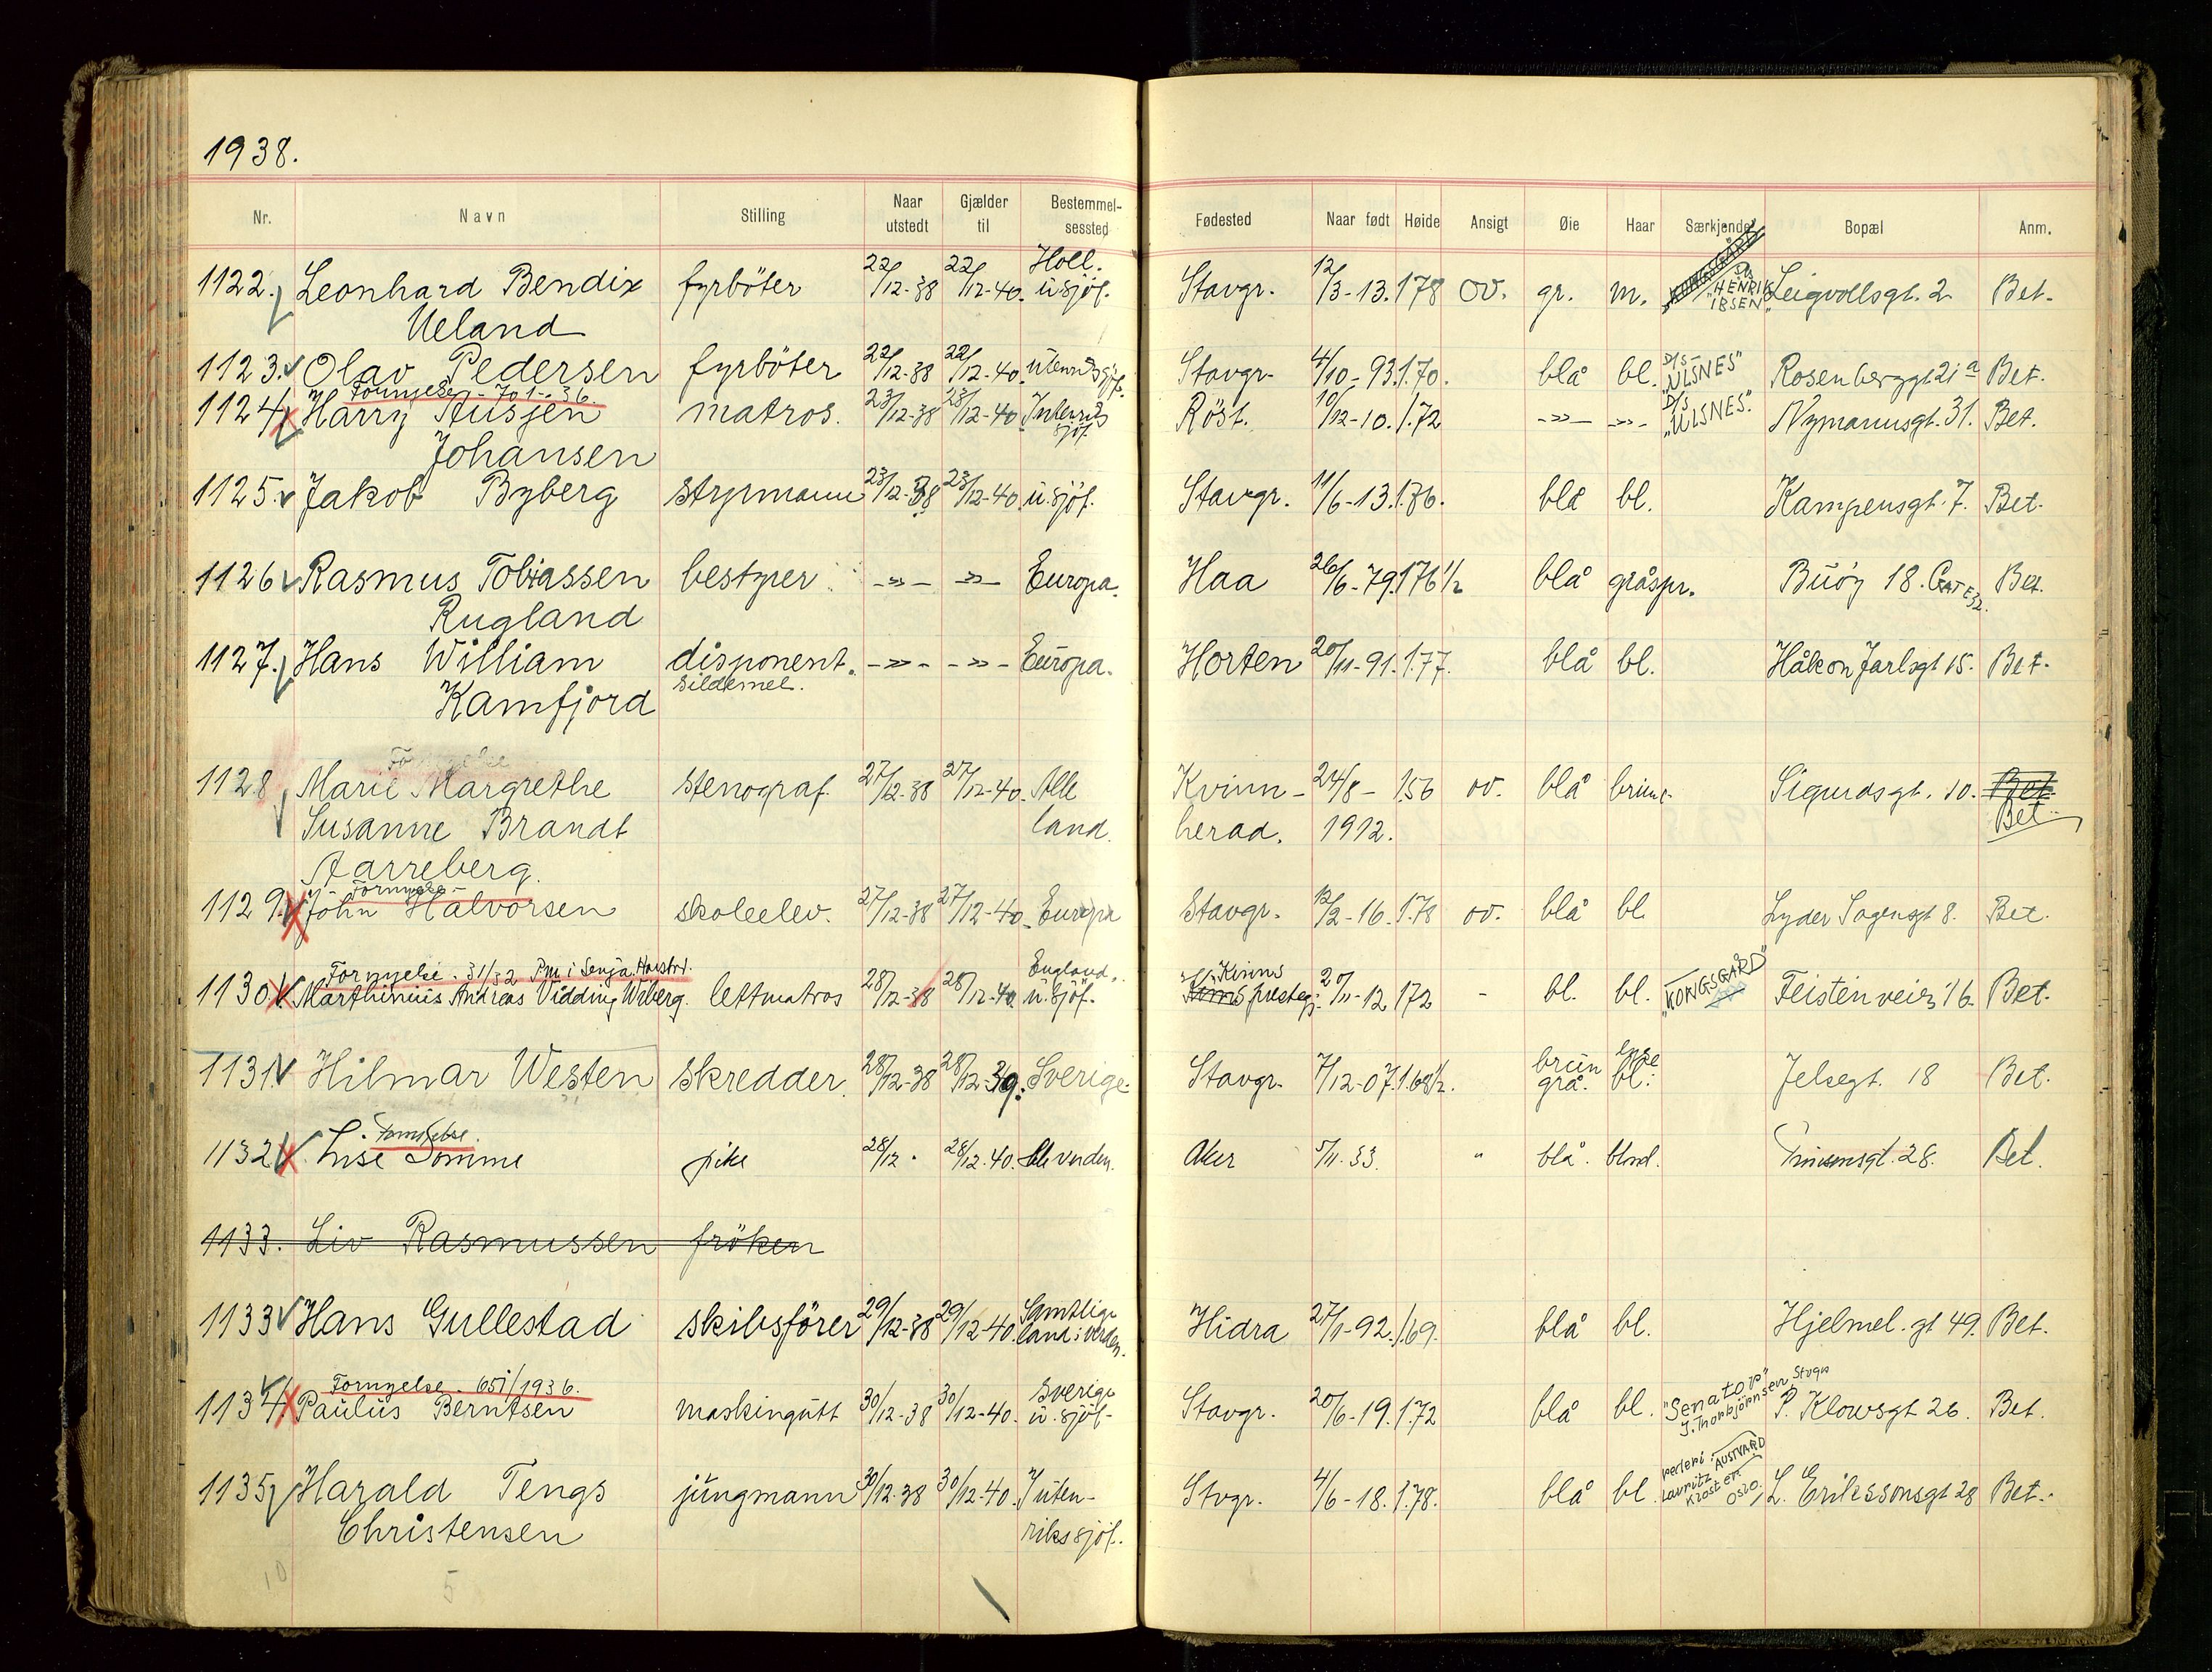 1938.
Nr. Navn Stilling Naar utstedt Gjælder til Bestemmelsessted Fødested Naar født Høide Ansigt Øie Haar Særkjende Bopæl Anm.
1122. Leonhard Bendix fyrböter 22/12-38 22/12-40. Holl. u. sjöf. Stavgr. 12/3-13. 178 ov. gr. m. KONGSGÅRD D/S "HENRIK IBSEN" Leigvollsgt. 2. Bet.
Ueland
1123. Olav Pedersen fyrböter 22/12-38 22/12-40. utenriks sjöf. Stavgr. 4/10-93. 1.70. blå bl. D/S "ULSNES" Rosenberggt 21a Bet.
Fornyelse - 701-36.
1124 Harry Ausjen matros. 23/12-38 23/12-40 Inhenriks sjöf. Röst. 10/12-10. 1.72 -»- -»- D/S "ULSNES". Nymannsgt. 31. Bet.
Johansen
1125. Jakob Byberg styrmann 23/12-38 23/12-40. u. sjöf. Stavgr. 11/6-13. 1.76. blå bl. Kampensgt. 7. Bet.
1126 Rasmus Tobiassen bestyrer -»- -»- Europa. Haa 26/6-79. 176 1/2 blå gråspr. Buöy 18. GATE 32. Bet.
Rugland
1127. Hans William disponent. -»- -»- Europa. Horten 20/11-91. 1.77. blå bl. Håkon Jarlsgt 15. Bet.
sildemel.
Kamfjord
Fornyelse
1128 Marie Margrethe stenograf. 27/12-38 27/12-40. Alle Kvinn- 24/8- 156 ov. blå brune. Sigurdsgt. 10. Bet.
Susanne Brandt land. herad. 1912. Bet.
Aarreberg.
Fornyelse -
1129. John Halvorsen skoleelev. 27/12-38 27/12-40. Europa Stavgr. 12/2-16. 1.78 ov. blå bl. Lyder Sagensgt 8. Bet.
Fornyelse. 31/32 Pm i Senja. Harstad.
1130. Marthinius Andreas Vidding Wiberg. lettmatros 28/12-38 28/12-40 England. u. sjöf. Kinns prestegj. 20/11-12 172 - bl. bl. "KONGSGÅRD" Feistenveien 16. Bet.
1131. Hilmar Westen skredder. 28/12-38 28/12-39. Sverige. Stavgr. 7/12-07. 1.68 1/2. brun grå. lyse bl. Jelsegt. 18 Bet.
Fornyelse.
1132 Lise Sømme pike 28/12. 28/12.40. Hele verden. Aker 5/11.33. " blå. blond. Prinsensgt. 28. Bet.
1133. Liv Rasmussen fröken
1133 Hans Gullestad skibsförer 29/12-38 29/12-40. Samtlige land i verden. Hidra 27/1-92. 1.69. blå bl. Hjelmel. gt 49. Bet.
Fornyelse - 651/1936.
1134 Paulus Berntsen maskingutt 30/12-38 30/12-40. Sverige u. sjöf. Stavgr. 20/6-19. 1.72 blå bl. "Senator" J. Thorbjörnsen Stvgr P. Klowsgt 26. Bet.
1135 Harald Tengs jungmann 30/12-38 30/12-40. I uten- Stvgr. 4/6-18. 1.78. blå bl. rederi AUSTVARD Lauritz Kloster Oslo. L. Erikssonsgt 28 Bet.
Christensen rikssjöf.
10 5